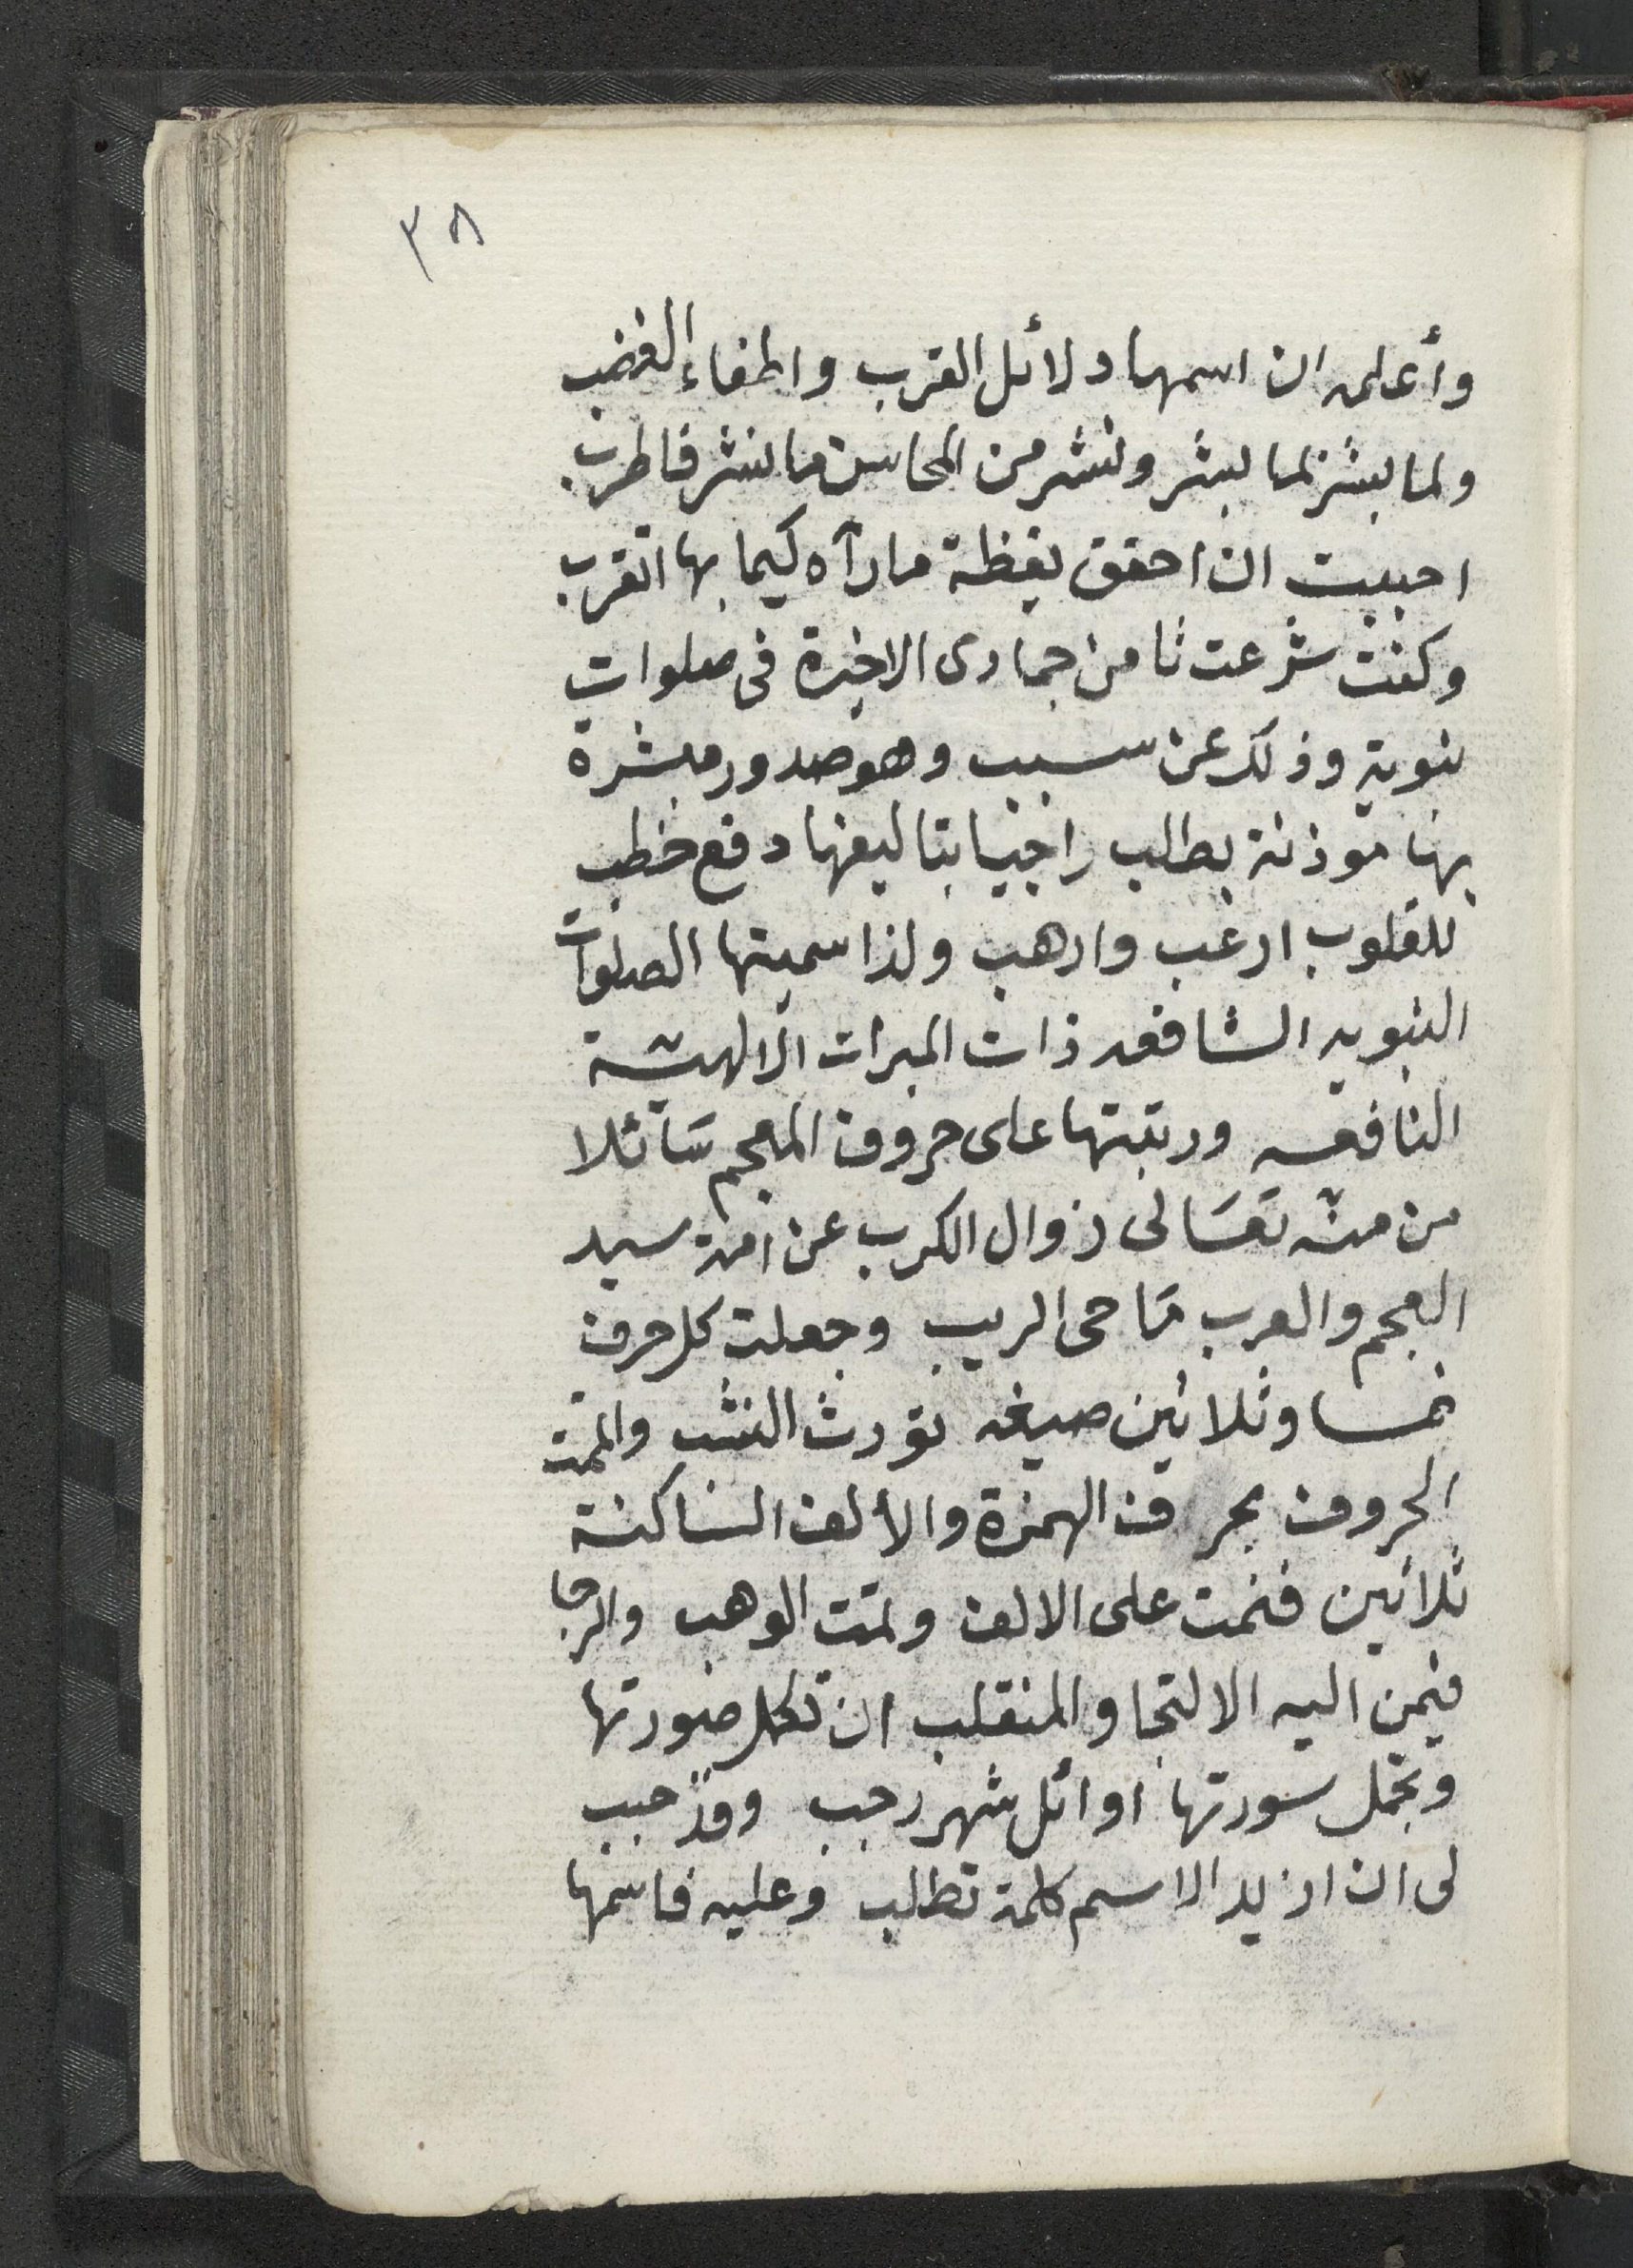 ٣٨
وأعلمه ان اسمها دلائل القرب واطفاء الغضب
ولما بشر بما بشر ونشر من المحاسن ما نشر فاطرب
احببت ان احقق يقظة ما رآه كيما بها اتقرب
وكنت شرعت ثامن جمادى الاخيرة فى صلوات
نبوية وذلك عن سبب وهو صدور مبشرة
بها موذنة بطلب راجيا بتاليفها دفع خطب
للقلوب ارغب وارهب ولذا سميتها الصلوات
النبويه الشافعه ذات المبرات الالهية
النافعه ورتبتها على حروف المعجم سائلا
من منه تعالى زوال الكرب عن امة سيد
العجم والعرب ماحى الريب وجعلت كل حرف
خمسا وثلاثين صيغه تورث النشب
الحروف بحرف الهمزة والألف الساكنة
ثلاثين فنمت على الالف ونمت الوهب والرجا
فيمن اليه الالتجا والمنقلب ان تكمل صورتها
وتجمل سورتها اوائل شهر رجب وقد حبب
لى ان ازيد الاسم كلمة تطلب وعليه فاسمها